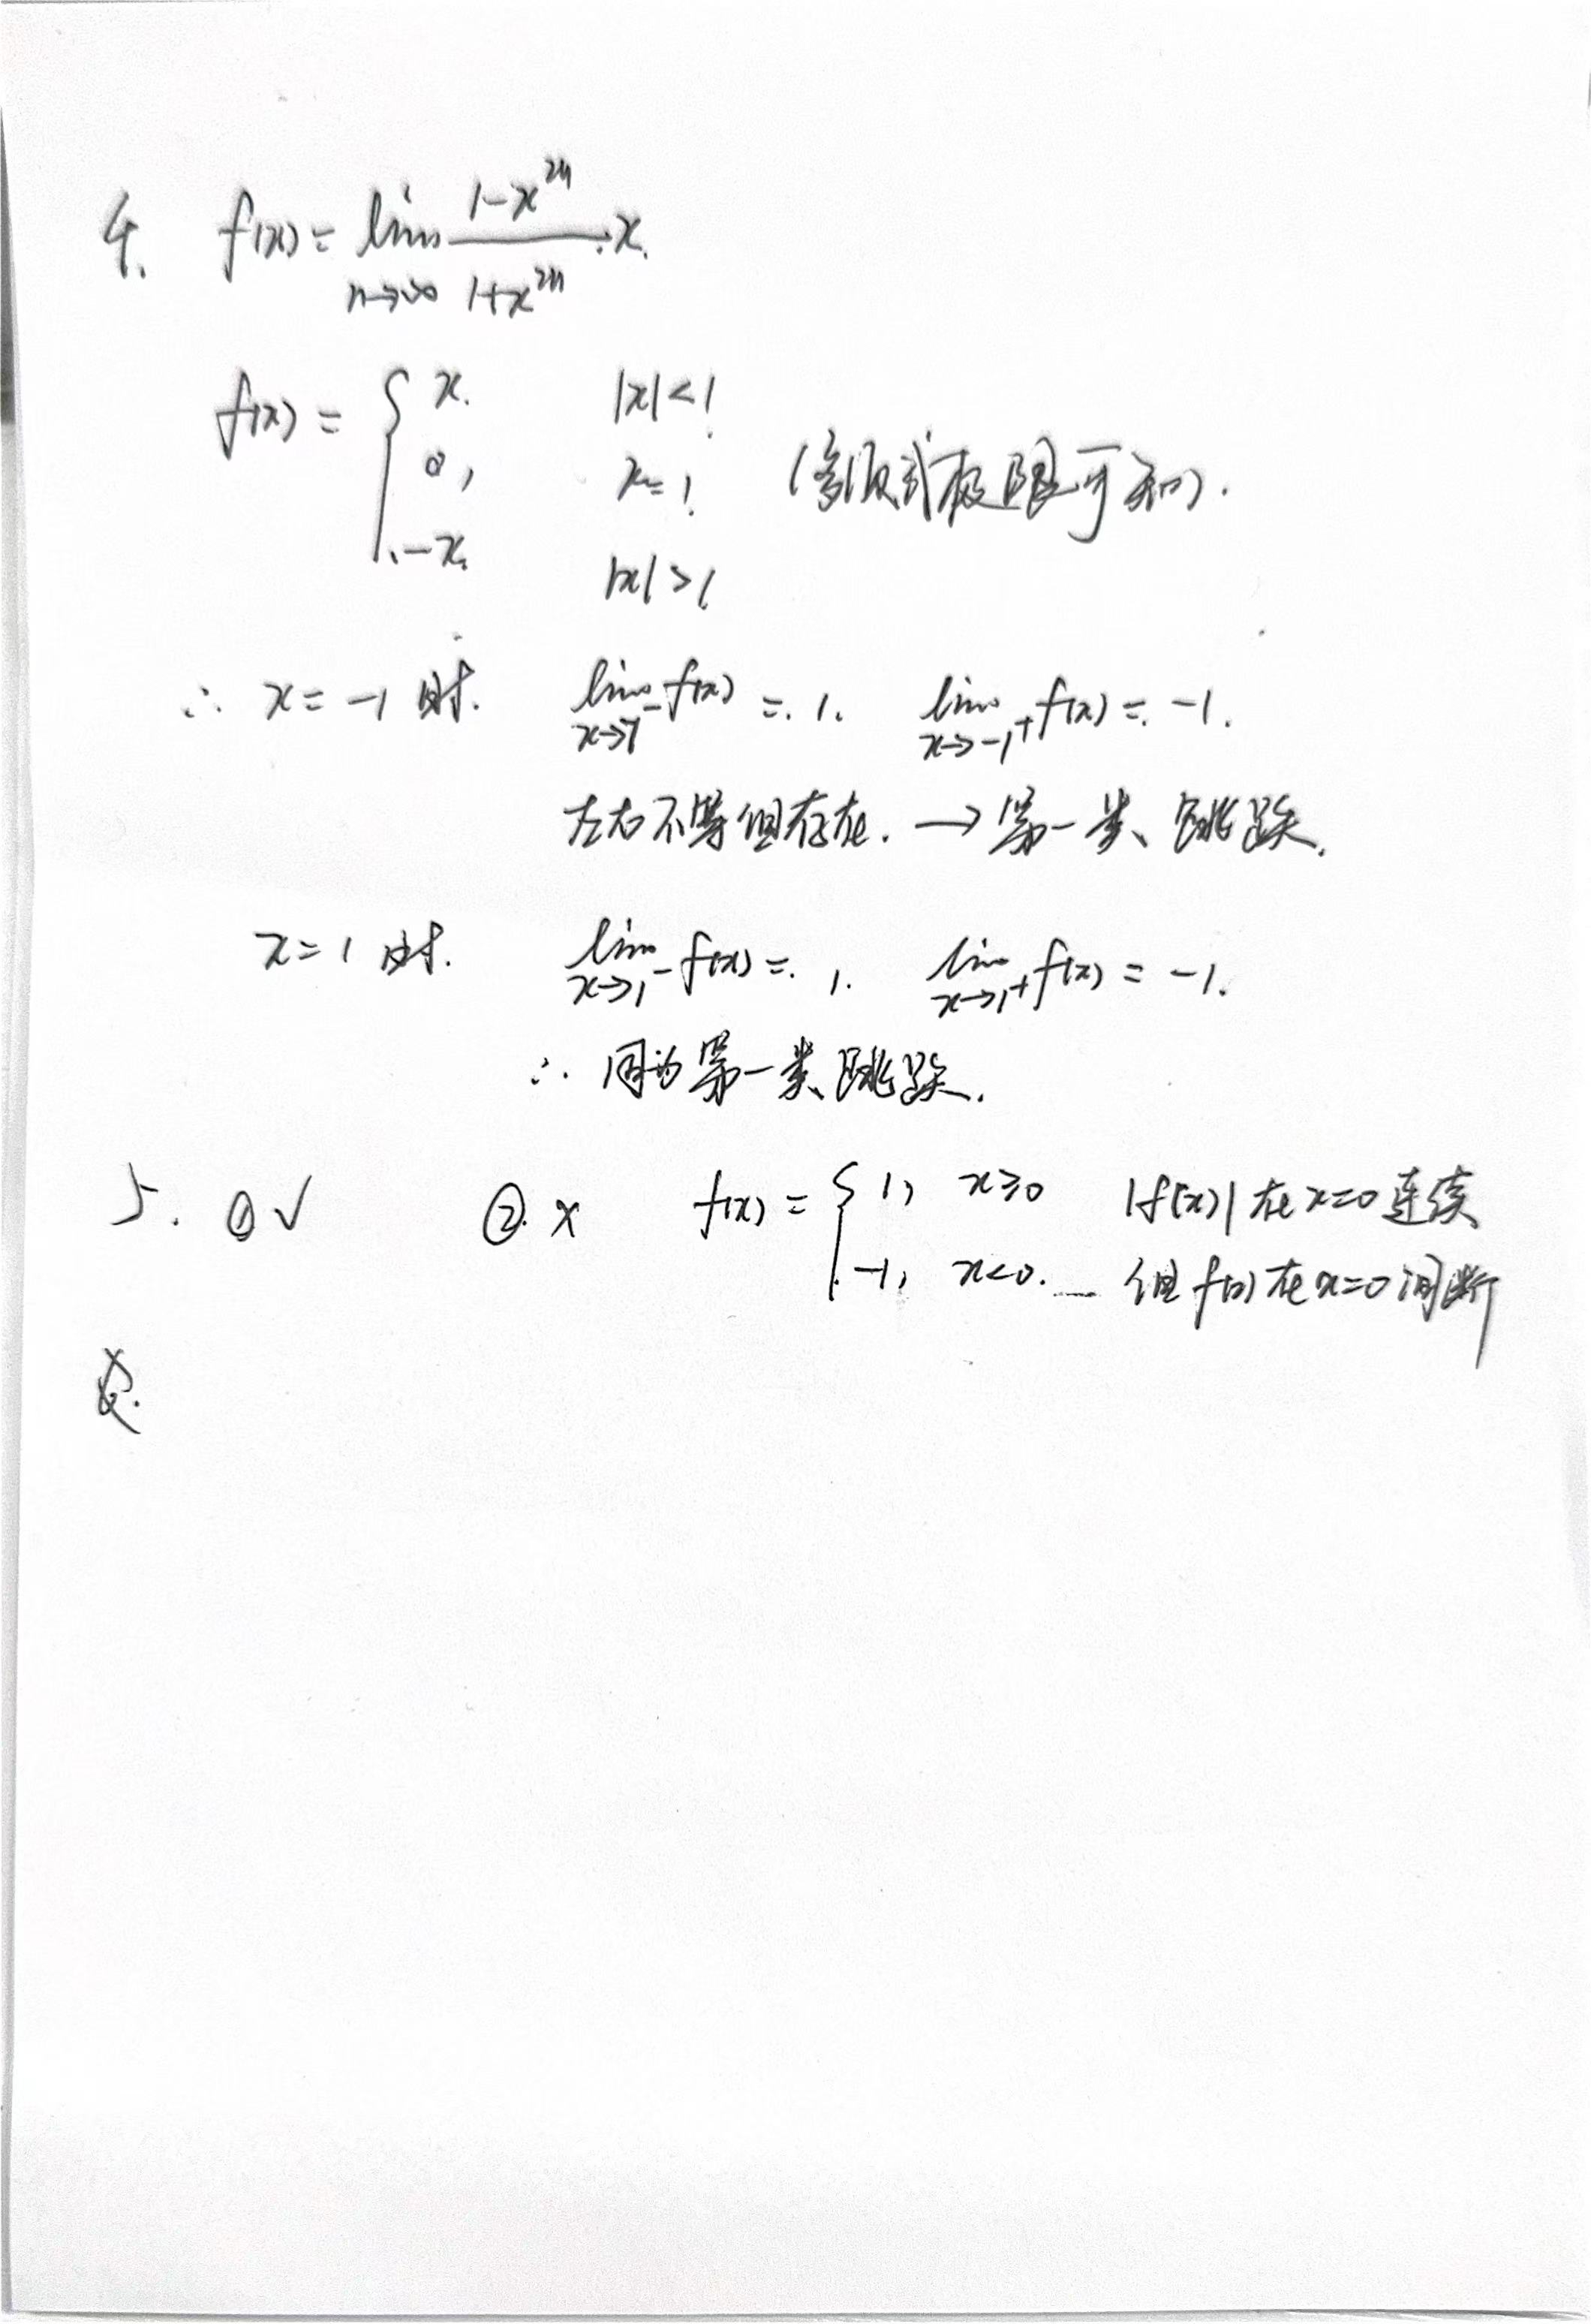 4. f(x) = lim n→∞ (1-x^{2n})/(1+x^{2n}) · x.
f(x) = { x. |x|<1
0, x=1 (多项式极限可知).
-x. |x|>1
∴ x = -1 时. lim x→-1⁻ f(x) = 1. lim x→-1⁺ f(x) = -1.
左右不等但存在. → 第一类、跳跃.
x = 1 时. lim x→1⁻ f(x) = 1. lim x→1⁺ f(x) = -1.
∴ 同为第一类、跳跃.
5. ① √ ② × f(x) = { 1, x≥0 |f(x)| 在 x=0 连续
-1, x<0. 但 f(x) 在 x=0 间断